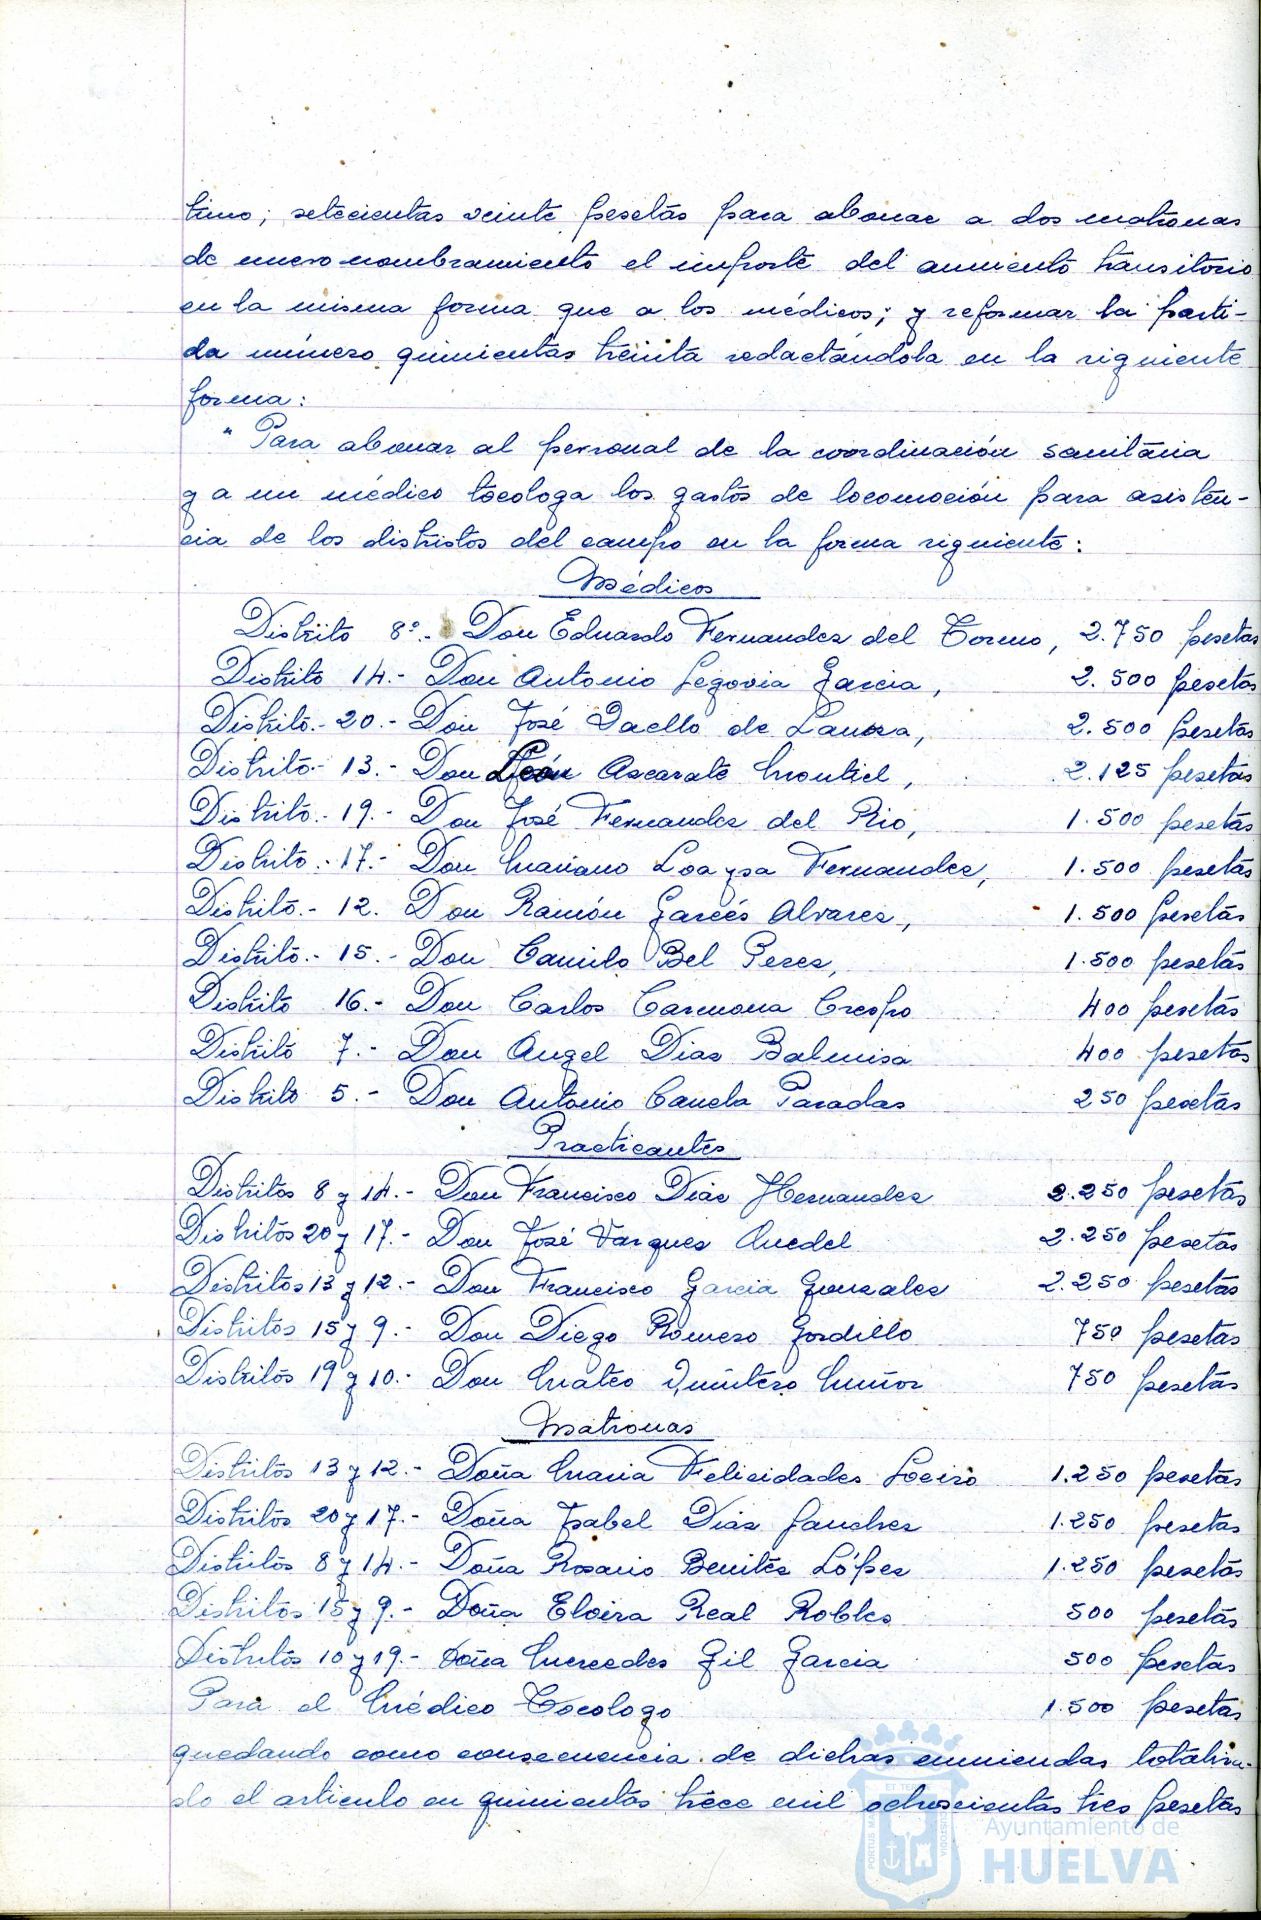 timo; setecientas veinte pesetas para abonar a dos matronas
de nuevo nombramiento el importe del aumento transitorio
en la misma forma que a los médicos; y reformar la parti-
da número quinientas treinta redactándola en la siguiente
forma:
" Para abonar al personal de la coordinación sanitaria
y a un médico tocologa los gastos de locomoción para asisten-
cia de los distritos del campo en la forma siguiente:
Médicos
Distrito 8º.- Don Eduardo Fernandez del Torno, 2.750 pesetas
Distrito 14.- Don Antonio Segovia Garcia, 2.500 pesetas
Distrito.- 20.- Don José de 2.500 pesetas
Distrito.- 13.- Don León Azcarate Montiel, 2.125 pesetas
Distrito.- 19.- Don José Fernandez del Rio, 1.500 pesetas
Distrito.- 17.- Don Mariano Loaysa Fernandez, 1.500 pesetas
Distrito.- 12. Don Ramón Garcés Alvarez, 1.500 pesetas
Distrito.- 15.- Don Camilo Bel Perez, 1.500 pesetas
Distrito 16.- Don Carlos Carmona Crespo 400 pesetas
Distrito 7.- Don Angel Diaz Balmisa 400 pesetas
Distrito 5.- Don Antonio Canela Paradas 250 pesetas
Practicantes
Distritos 8 y 14.- Don Francisco Diaz Hernandez 2.250 pesetas
Distritos 20 y 17.- Don José Vazquez 2.250 pesetas
Distritos 13 y 12.- Don Francisco Garcia Gonzalez 2.250 pesetas
Distritos 15 y 9.- Don Diego Romero Gordillo 750 pesetas
Distritos 19 y 10.- Don Mateo Quintero Muñoz 750 pesetas
Matronas
Distritos 13 y 12.- Doña Maria Felicidades Loeiro 1.250 pesetas
Distritos 20 y 17.- Doña Isabel Diaz Sanchez 1.250 pesetas
Distritos 8 y 14.- Doña Rosario Benitez López 1.250 pesetas
Distritos 15 y 9.- Doña Elvira Real Robles 500 pesetas
Distritos 10 y 19.- Doña Mercedes Gil Garcia 500 pesetas
Para el Médico Tocologo 1.500 pesetas
quedando como consecuencia de dichas enmiendas totaliza-
do el articulo en quinientas trece mil ochocientas tres pesetas
PORTUS MARIS ET TERRAE CUSTODIA
Ayuntamiento de
HUELVA